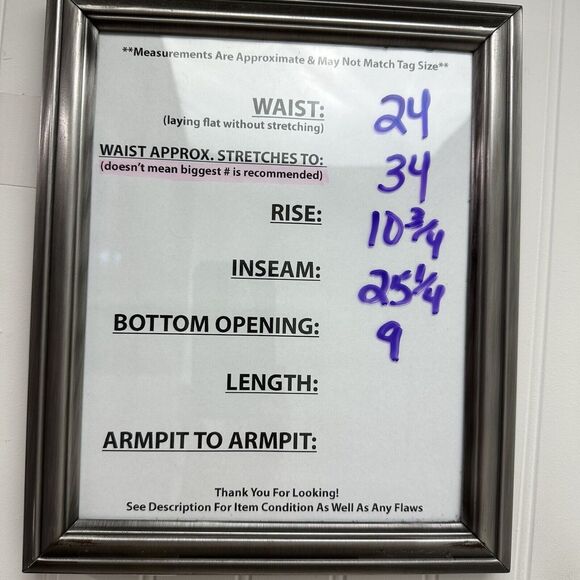 **Measurements Are Approximate & May Not Match Tag Size**
WAIST: 24
(laying flat without stretching)
WAIST APPROX. STRETCHES TO: 34
(doesn't mean biggest # is recommended)
RISE: 10 3/4
INSEAM: 25 1/4
BOTTOM OPENING: 9
LENGTH:
ARMPIT TO ARMPIT:
Thank You For Looking!
See Description For Item Condition As Well As Any Flaws